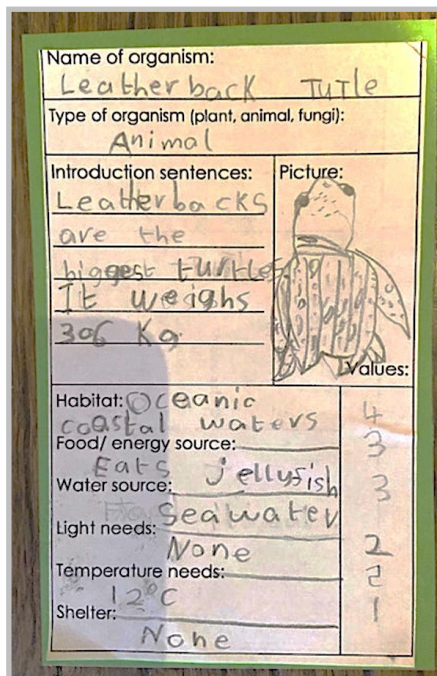 Name of organism:
Leatherback TuTle
Type of organism (plant, animal, fungi):
Animal
Introduction sentences:
Leatherbacks
are the
biggest turtles
It weighs
306 Kg
Picture:
Values:
Habitat: Oceanic
coastal waters
4
Food/ energy source:
3
Eats jellyfish
Water source:
3
Seawater
Light needs:
None
2
Temperature needs:
2
12°C
Shelter:
1
None